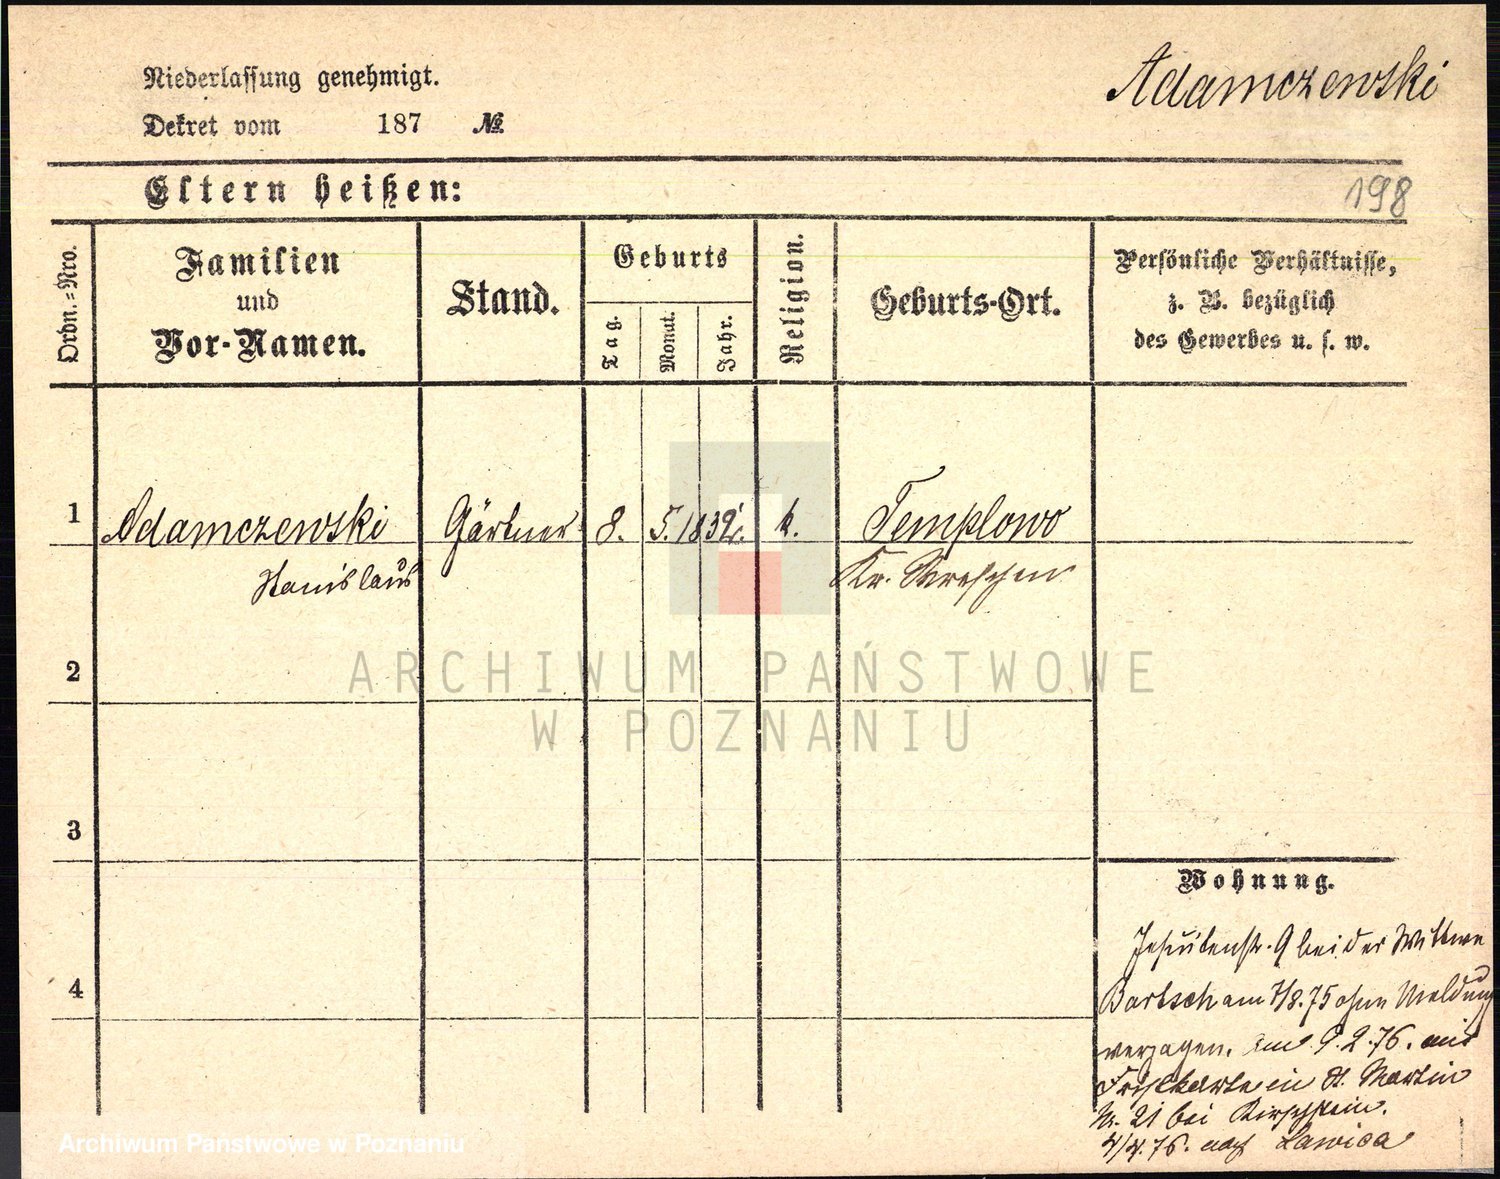 Niederlassung genehmigt.
Dekret vom 187 №
Adamczewski
Eltern heißen:
198
Ordn.=Nro.
Familien
und
Vor-Namen.
Stand.
Geburts
Tag.
Monat.
Jahr.
Religion.
Geburts-Ort.
Persönliche Verhältnisse,
z. B. bezüglich
des Gewerbes u. s. w.
1 Adamczewski Gärtner 8. 5. 1839. k. Templowo
Stanislaus Kr. Wreschen
2
ARCHIWUM PAŃSTWOWE
W POZNANIU
3
4
Wohnung.
Jesuitenstr. 9 bei der Wittwe
Bartsch am 7/8.75 ohne Meldung
verzogen. am 9.2.76. mit
in St. Martin
No. 21 bei Kirschstein.
4/4.76. nach Lawica
Archiwum Państwowe w Poznaniu